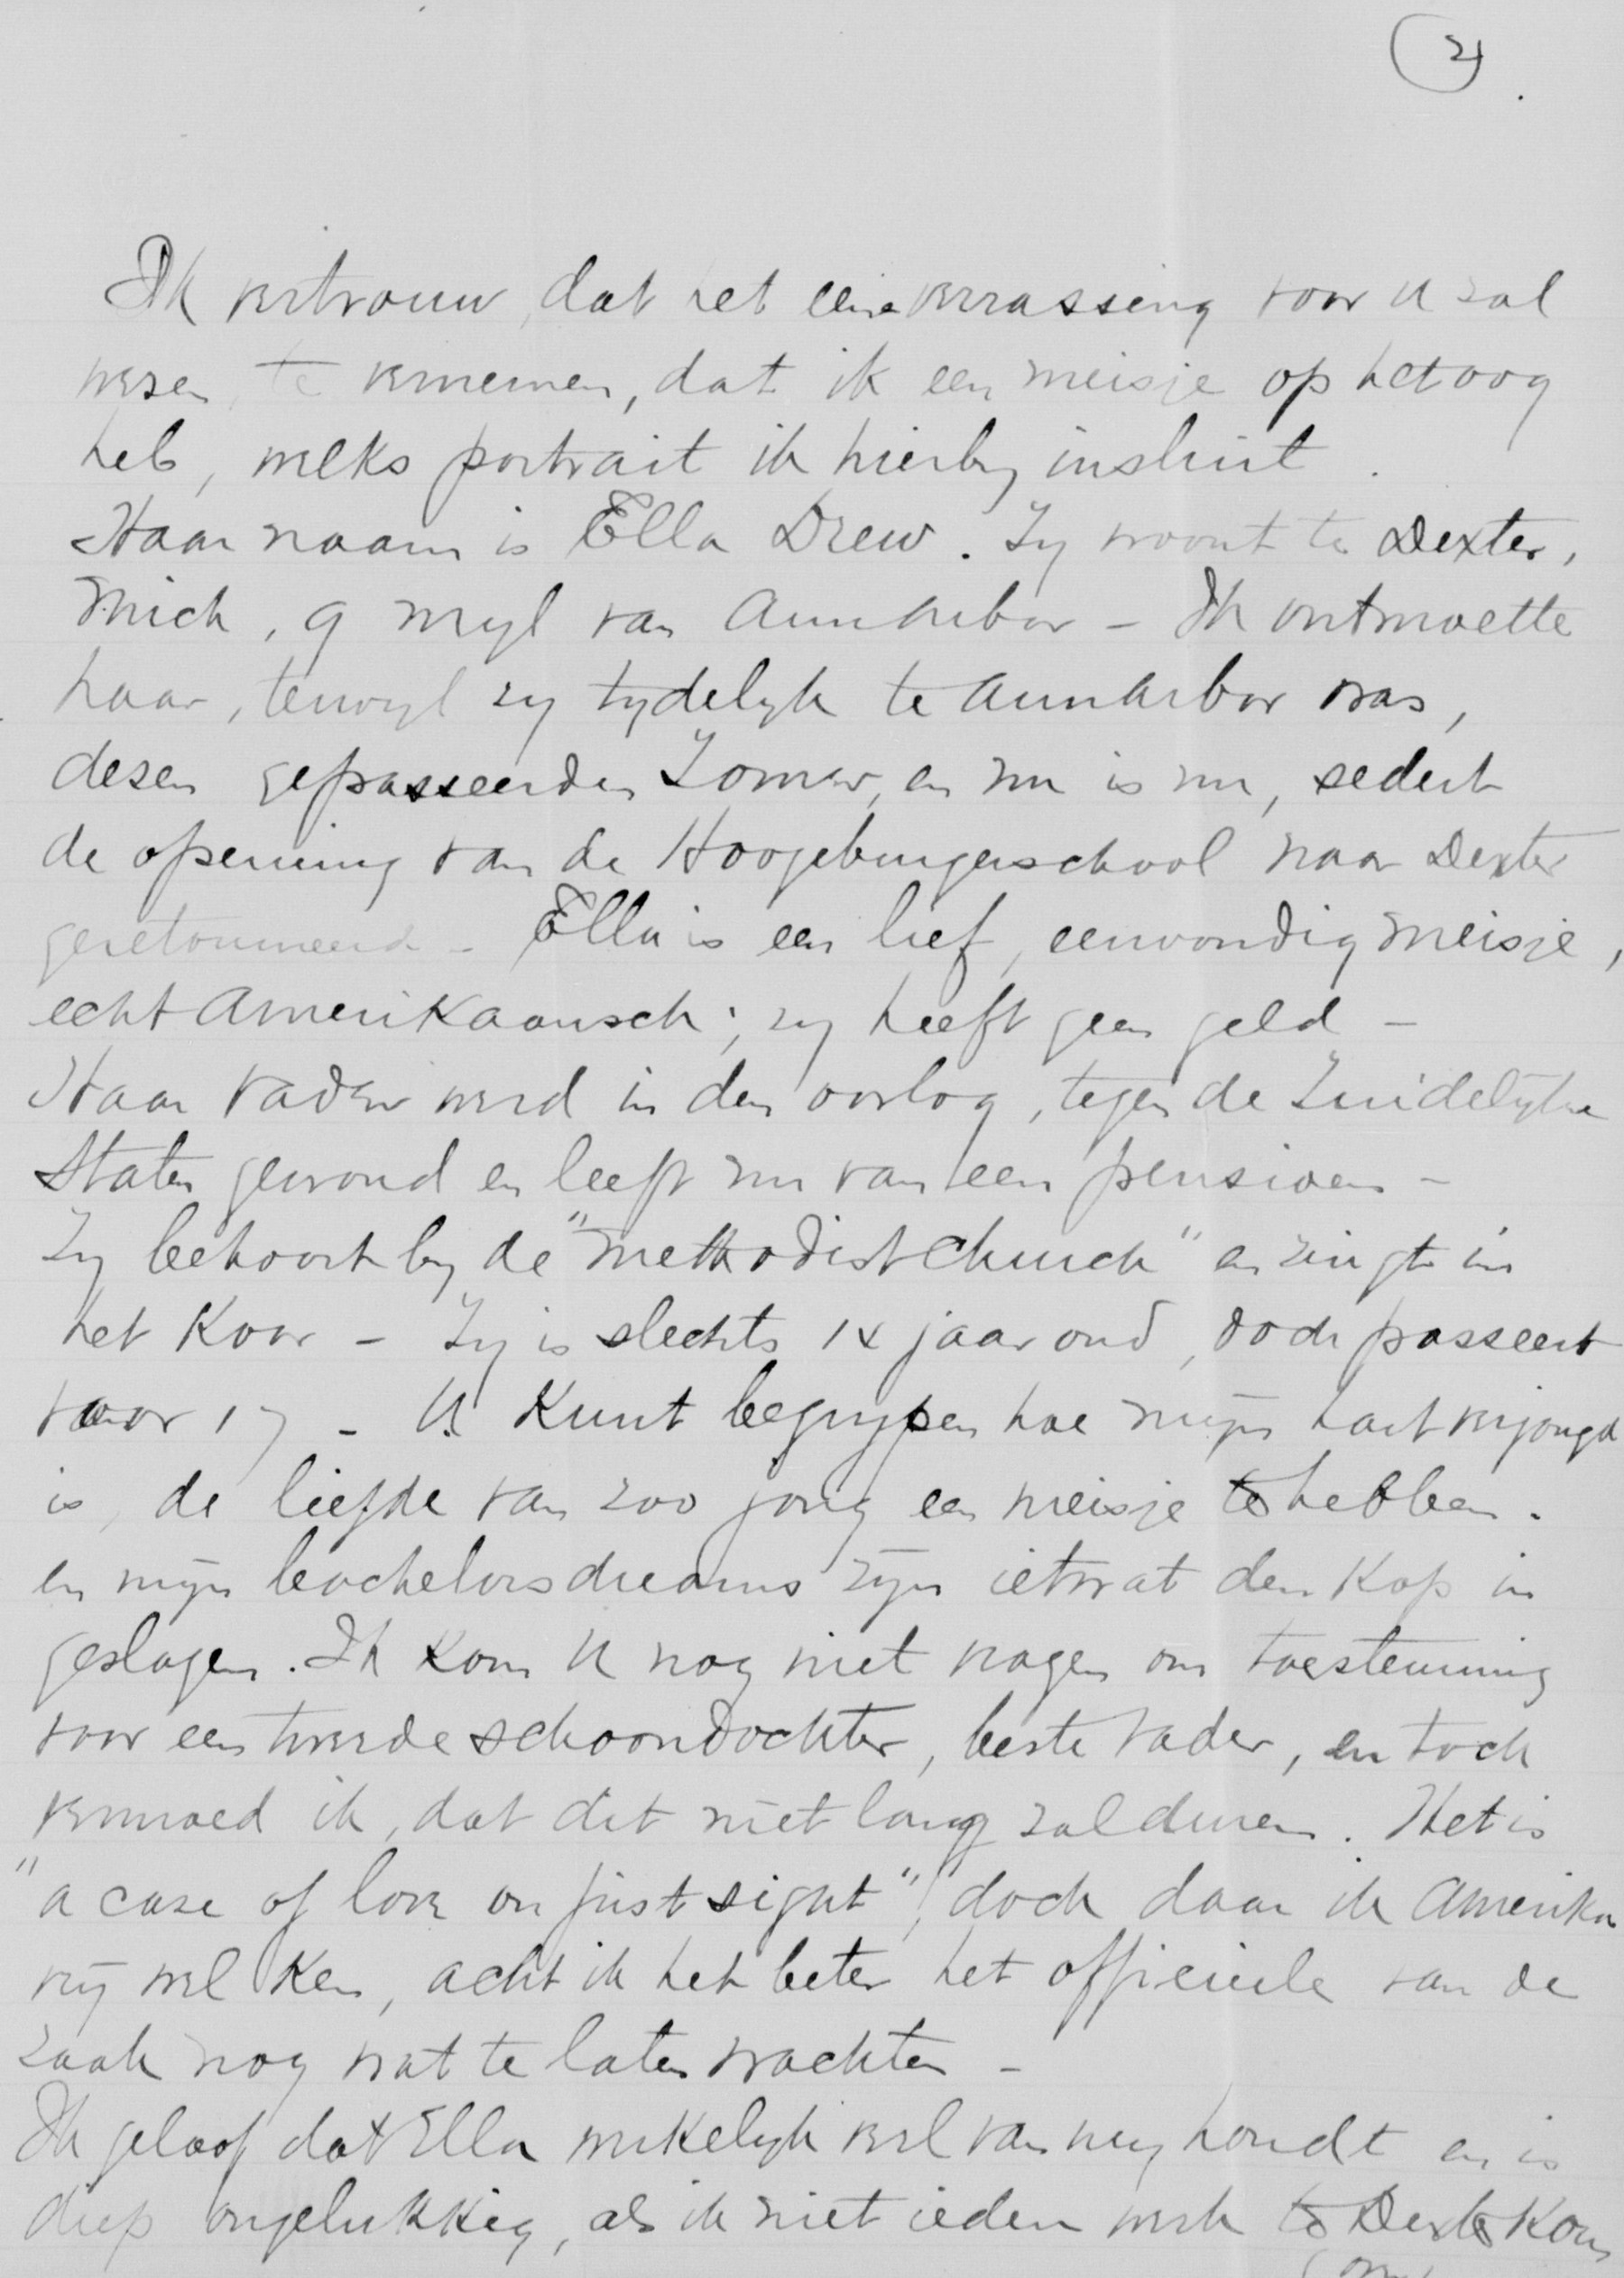 2
Ik vertrouw, dat het eene verrassing voor U zal
wezen, te vernemen, dat ik een meisje op het oog
heb, welks portrait ik hierby insluit.
Haar naam is Ella Drew. Zy woont te Dexter,
Mich, 9 myl van Ann Arbor - Ik ontmoette
haar, terwyl zy tydelyk te Ann Arbor was,
dezen gepasseerden Zomer, en nu is nu, sedert
de opening van de Hoogeburgerschool naar Dexter
geretourneerd - Ella is een lief, eenvoudig meisje,
echt Amerikaansch; zy heeft geen geld -
Haar vader werd in den oorlog, tegen de Zuidelyke
Staten gewond en leeft nu van een pensioen -
Zy behoort by de "Methodist Church" en zingt in
het Koor - Zy is slechts 14 jaar oud, doch passeert
voor 17 - U Kunt begrypen hoe myn hart verjongd
is, de liefde van zoo jong een meisje te hebben.
en myn bachelorsdreams zyn ietwat den Kop in
geslagen. Ik kom U nog niet vragen om toestemming
voor een tweede schoondochter, beste Vader, en toch
vermoed ik, dat dit niet lang zal duren. Het is
"a case of love on first sight", doch daar ik Amerika
vry wel Ken, acht ik het beter het officieele van de
zaak nog wat te laten wachten -
Ik geloof dat Ella werkelyk veel van my houdt en is
diep ongelukkig, als ik niet iedere week te Dexter Kom